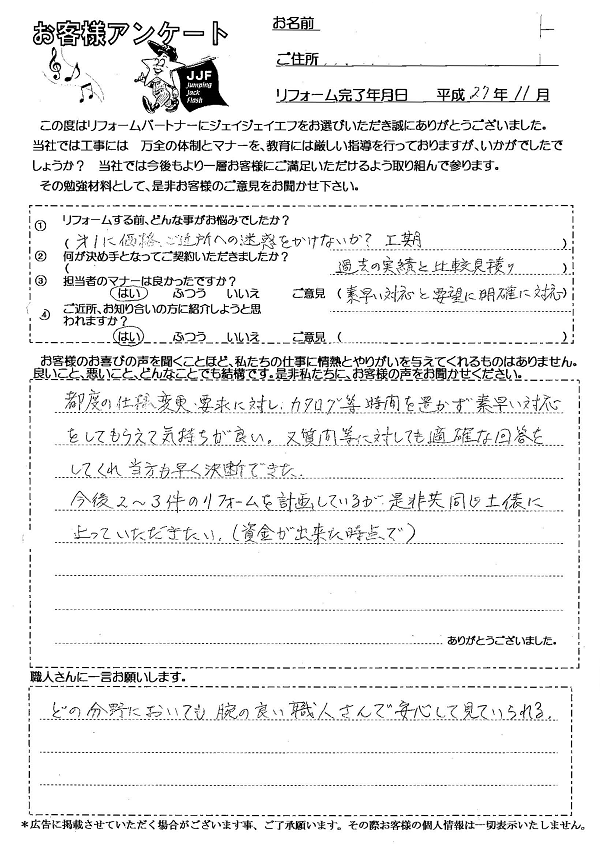 お客様アンケート
JJF
Jumping
Jack
Flash
お名前
ご住所
リフォーム完了年月日 平成27年11月
この度はリフォームパートナーにジェイジェイエフをお選びいただき誠にありがとうございました。
当社では工事には 万全の体制とマナーを、教育には厳しい指導を行っておりますが、いかがでしたで
しょうか? 当社では今後もより一層お客様にご満足いただけるよう取り組んで参ります。
その勉強材料として、是非お客様のご意見をお聞かせ下さい。
① リフォームする前、どんな事がお悩みでしたか?
(第1に価格、ご近所への迷惑をかけないか? 工期)
② 何が決め手となってご契約いただきましたか?
( 過去の実績と比較見積り)
③ 担当者のマナーは良かったですか?
はい ふつう いいえ ご意見 (素早い対応と要望に明確に対応)
④ ご近所、お知り合いの方に紹介しようと思
われますか?
はい ふつう いいえ ご意見 ( )
お客様のお喜びの声を聞くことほど、私たちの仕事に情熱とやりがいを与えてくれるものはありません。
良いこと、悪いこと、どんなことでも結構です。是非私たちに、お客様の声をお聞かせください。
都度の仕様変更、要求に対し、カタログ等時間を置かず素早い対応
をしてもらえて気持ちが良い。又質問等に対しても適確な回答を
してくれ当方も早く決断できた。
今後2~3件のリフォームを計画しているが、是非共同じ土俵に
上っていただきたい。(資金が出来た時点で)
ありがとうございました。
職人さんに一言お願いします。
どの分野においても腕の良い職人さんで安心して見ていられる。
*広告に掲載させていただく場合がございます事、ご了承願います。その際お客様の個人情報は一切表示いたしません。